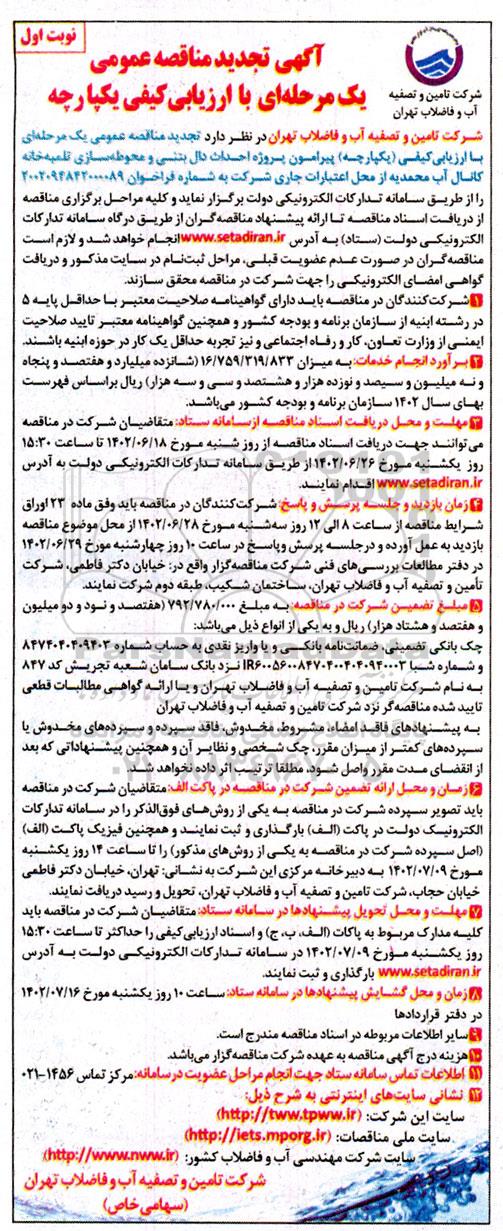 نوبت اول
شرکت تامین و تصفیه
آب و فاضلاب تهران
آگهی تجدید مناقصه عمومی
یک مرحله‌ای با ارزیابی کیفی یکپارچه
شرکت تامین و تصفیه آب و فاضلاب تهران در نظر دارد تجدید مناقصه عمومی یک مرحله‌ای
با ارزیابی کیفی (یکپارچه) پیرامون پروژه احداث دال بتنی و محوطه‌سازی تلمبه‌خانه
کانال آب محمدیه از محل اعتبارات جاری شرکت به شماره فراخوان ۲۰۰۲۰۹۴۸۴۲۰۰۰۰۸۹
را از طریق سامانه تدارکات الکترونیکی دولت برگزار نماید و کلیه مراحل برگزاری مناقصه
از دریافت اسناد مناقصه تا ارائه پیشنهاد مناقصه‌گران از طریق درگاه سامانه تدارکات
الکترونیکی دولت (ستاد) به آدرس www.setadiran.ir انجام خواهد شد و لازم است
مناقصه‌گران در صورت عدم عضویت قبلی، مراحل ثبت‌نام در سایت مذکور و دریافت
گواهی امضای الکترونیکی را جهت شرکت در مناقصه محقق سازند.
۱ شرکت‌کنندگان در مناقصه باید دارای گواهینامه صلاحیت معتبر با حداقل پایه ۵
در رشته ابنیه از سازمان برنامه و بودجه کشور و همچنین گواهینامه معتبر تایید صلاحیت
ایمنی از وزارت تعاون، کار و رفاه اجتماعی و نیز تجربه حداقل یک کار در حوزه ابنیه باشند.
۲ برآورد انجام خدمات: به میزان ۱۶/۷۵۹/۳۱۹/۸۳۳ (شانزده میلیارد و هفتصد و پنجاه
و نه میلیون و سیصد و نوزده هزار و هشتصد و سی و سه هزار) ریال براساس فهرست
بهای سال ۱۴۰۲ سازمان برنامه و بودجه کشور می‌باشد.
۳ مهلت و محل دریافت اسناد مناقصه از سامانه ستاد: متقاضیان شرکت در مناقصه
می‌توانند جهت دریافت اسناد مناقصه از روز شنبه مورخ ۱۴۰۲/۰۶/۱۸ تا ساعت ۱۵:۳۰
روز یکشنبه مورخ ۱۴۰۲/۰۶/۲۶ از طریق سامانه تدارکات الکترونیکی دولت به آدرس
www.setadiran.ir اقدام نمایند.
۴ زمان بازدید و جلسه پرسش و پاسخ: شرکت‌کنندگان در مناقصه باید وفق ماده ۲۳ اوراق
شرایط مناقصه از ساعت ۸ الی ۱۲ روز سه‌شنبه مورخ ۱۴۰۲/۰۶/۲۸ از محل موضوع مناقصه
بازدید به عمل آورده و در جلسه پرسش و پاسخ در ساعت ۱۰ روز چهارشنبه مورخ ۱۴۰۲/۰۶/۲۹
در دفتر مطالعات بررسی‌های فنی شرکت مناقصه‌گزار واقع در: خیابان دکتر فاطمی، شرکت
تأمین و تصفیه آب و فاضلاب تهران، ساختمان شکیب، طبقه دوم شرکت نمایند.
۵ مبلغ تضمین شرکت در مناقصه: به مبلغ ۷۹۲/۷۸۰/۰۰۰ (هفتصد و نود و دو میلیون
و هفتصد و هشتاد هزار) ریال و به یکی از انواع ذیل می‌باشد:
چک بانکی تضمینی، ضمانت‌نامه بانکی و یا واریز نقدی به حساب شماره ۸۴۷۴۰۴۰۴۰۹۴۰۳
و شماره شبا IR۶۰۰۵۶۰۰۸۴۷۰۴۰۰۴۰۴۰۹۴۰۰۳ نزد بانک سامان شعبه تجریش کد ۸۴۷
به نام شرکت تامین و تصفیه آب و فاضلاب تهران و یا ارائه گواهی مطالبات قطعی
تایید شده مناقصه‌گر نزد شرکت تامین و تصفیه آب و فاضلاب تهران
به پیشنهادهای فاقد امضاء، مشروط، مخدوش، فاقد سپرده و سپرده‌های مخدوش یا
سپرده‌های کمتر از میزان مقرر، چک شخصی و نظایر آن و همچنین پیشنهاداتی که بعد
از انقضای مدت مقرر واصل شود، مطلقا ترتیب اثر داده نخواهد شد.
۶ زمان و محل ارائه تضمین شرکت در مناقصه در پاکت الف: متقاضیان شرکت در مناقصه
باید تصویر سپرده شرکت در مناقصه به یکی از روش‌های فوق‌الذکر را در سامانه تدارکات
الکترونیک دولت در پاکت (الف) بارگذاری و ثبت نمایند و همچنین فیزیک پاکت (الف)
(اصل سپرده شرکت در مناقصه به یکی از روش‌های مذکور) را تا ساعت ۱۴ روز یکشنبه
مورخ ۱۴۰۲/۰۷/۰۹ به دبیرخانه مرکزی این شرکت به نشانی: تهران، خیابان دکتر فاطمی
خیابان حجاب، شرکت تامین و تصفیه آب و فاضلاب تهران، تحویل و رسید دریافت نمایند.
۷ مهلت و محل تحویل پیشنهادها در سامانه ستاد: متقاضیان شرکت در مناقصه باید
کلیه مدارک مربوط به پاکات (الف، ب، ج) و اسناد ارزیابی کیفی را حداکثر تا ساعت ۱۵:۳۰
روز یکشنبه مورخ ۱۴۰۲/۰۷/۰۹ در سامانه تدارکات الکترونیکی دولت به آدرس
www.setadiran.ir بارگذاری و ثبت نمایند.
۸ زمان و محل گشایش پیشنهادها در سامانه ستاد: ساعت ۱۰ روز یکشنبه مورخ ۱۴۰۲/۰۷/۱۶
در دفتر قراردادها
۹ سایر اطلاعات مربوطه در اسناد مناقصه مندرج است.
۱۰ هزینه درج آگهی مناقصه به عهده شرکت مناقصه‌گزار می‌باشد.
۱۱ اطلاعات تماس سامانه ستاد جهت انجام مراحل عضویت در سامانه: مرکز تماس ۱۴۵۶-۰۲۱
۱۲ نشانی سایت‌های اینترنتی به شرح ذیل:
سایت این شرکت: (http://tww.tpww.ir)
سایت ملی مناقصات: (http://iets.mporg.ir)
سایت شرکت مهندسی آب و فاضلاب کشور: (http://www.nww.ir)
شرکت تامین و تصفیه آب و فاضلاب تهران
(سهامی خاص)